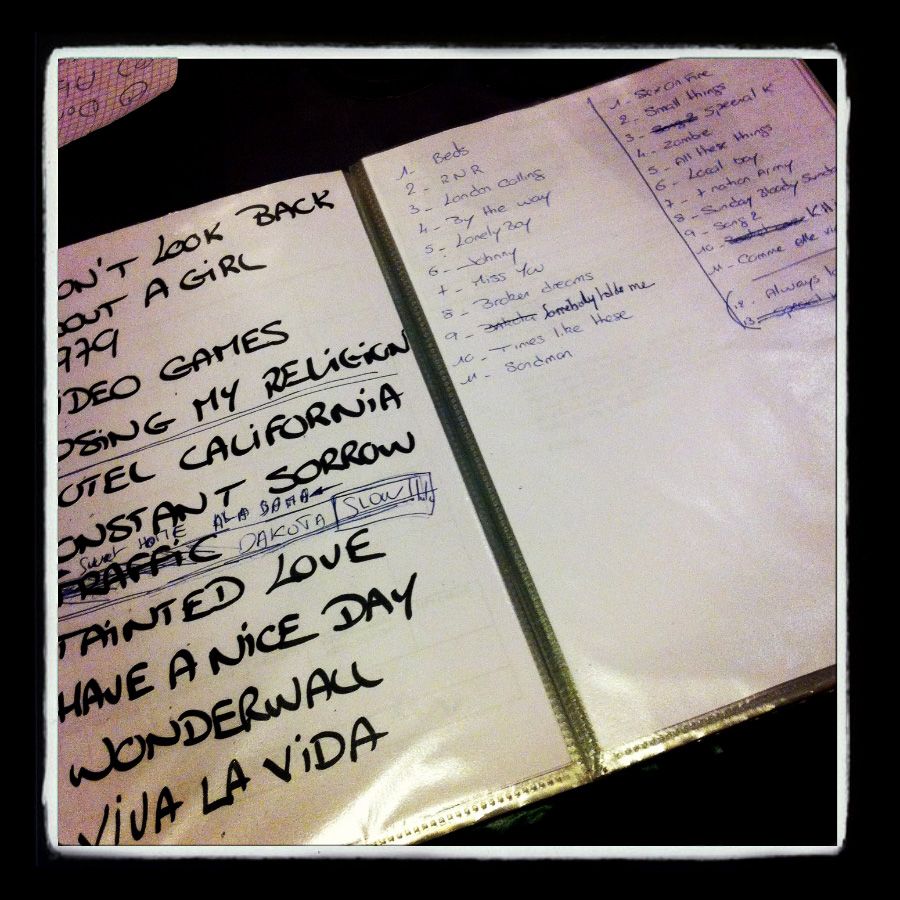 ON'T LOOK BACK
BOUT A GIRL
979
IDEO GAMES
OSING MY RELIGION
OTEL CALIFORNIA
ONSTANT SORROW
Sweet HOME ALABAMA
TRAFFIC DAKOTA SLOW!!!
TAINTED LOVE
HAVE A NICE DAY
WONDERWALL
VIVA LA VIDA
1- Beds
2- RNR
3- London Calling
4- By the way
5- Lonely Boy
6- Johnny
7- Miss You
8- Broken dreams
9- Dakota Somebody told me
10- Times like these
11- Sandman
1- Sex On Fire
2- Small things
3- Song 2 Special K
4- Zombie
5- All these things
6- Local boy
7- 7 nation Army
8- Sunday Bloody Sunda
9- Song 2
10-
11- Comme elle vi
12- Always
13- Special